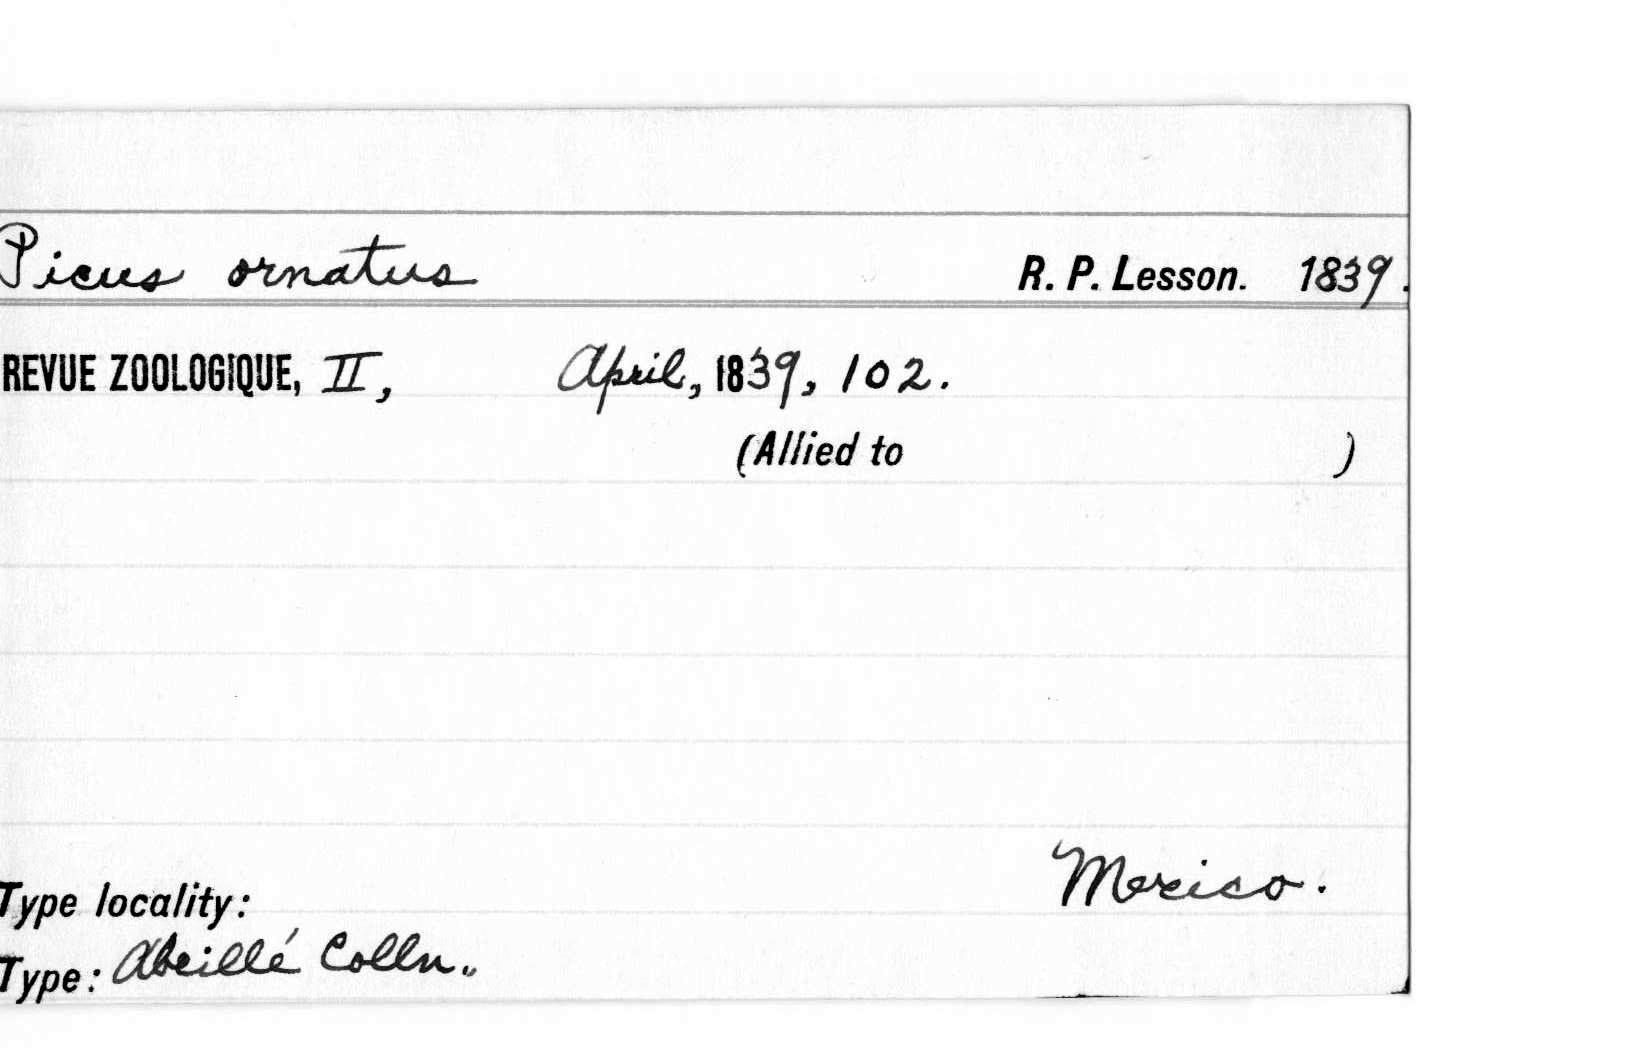 Picus ornatus R. P. Lesson. 1839.
REVUE ZOOLOGIQUE, II, April, 1839, 102.
(Allied to )
Mexico.
Type locality:
Type: Abeillé Colln.